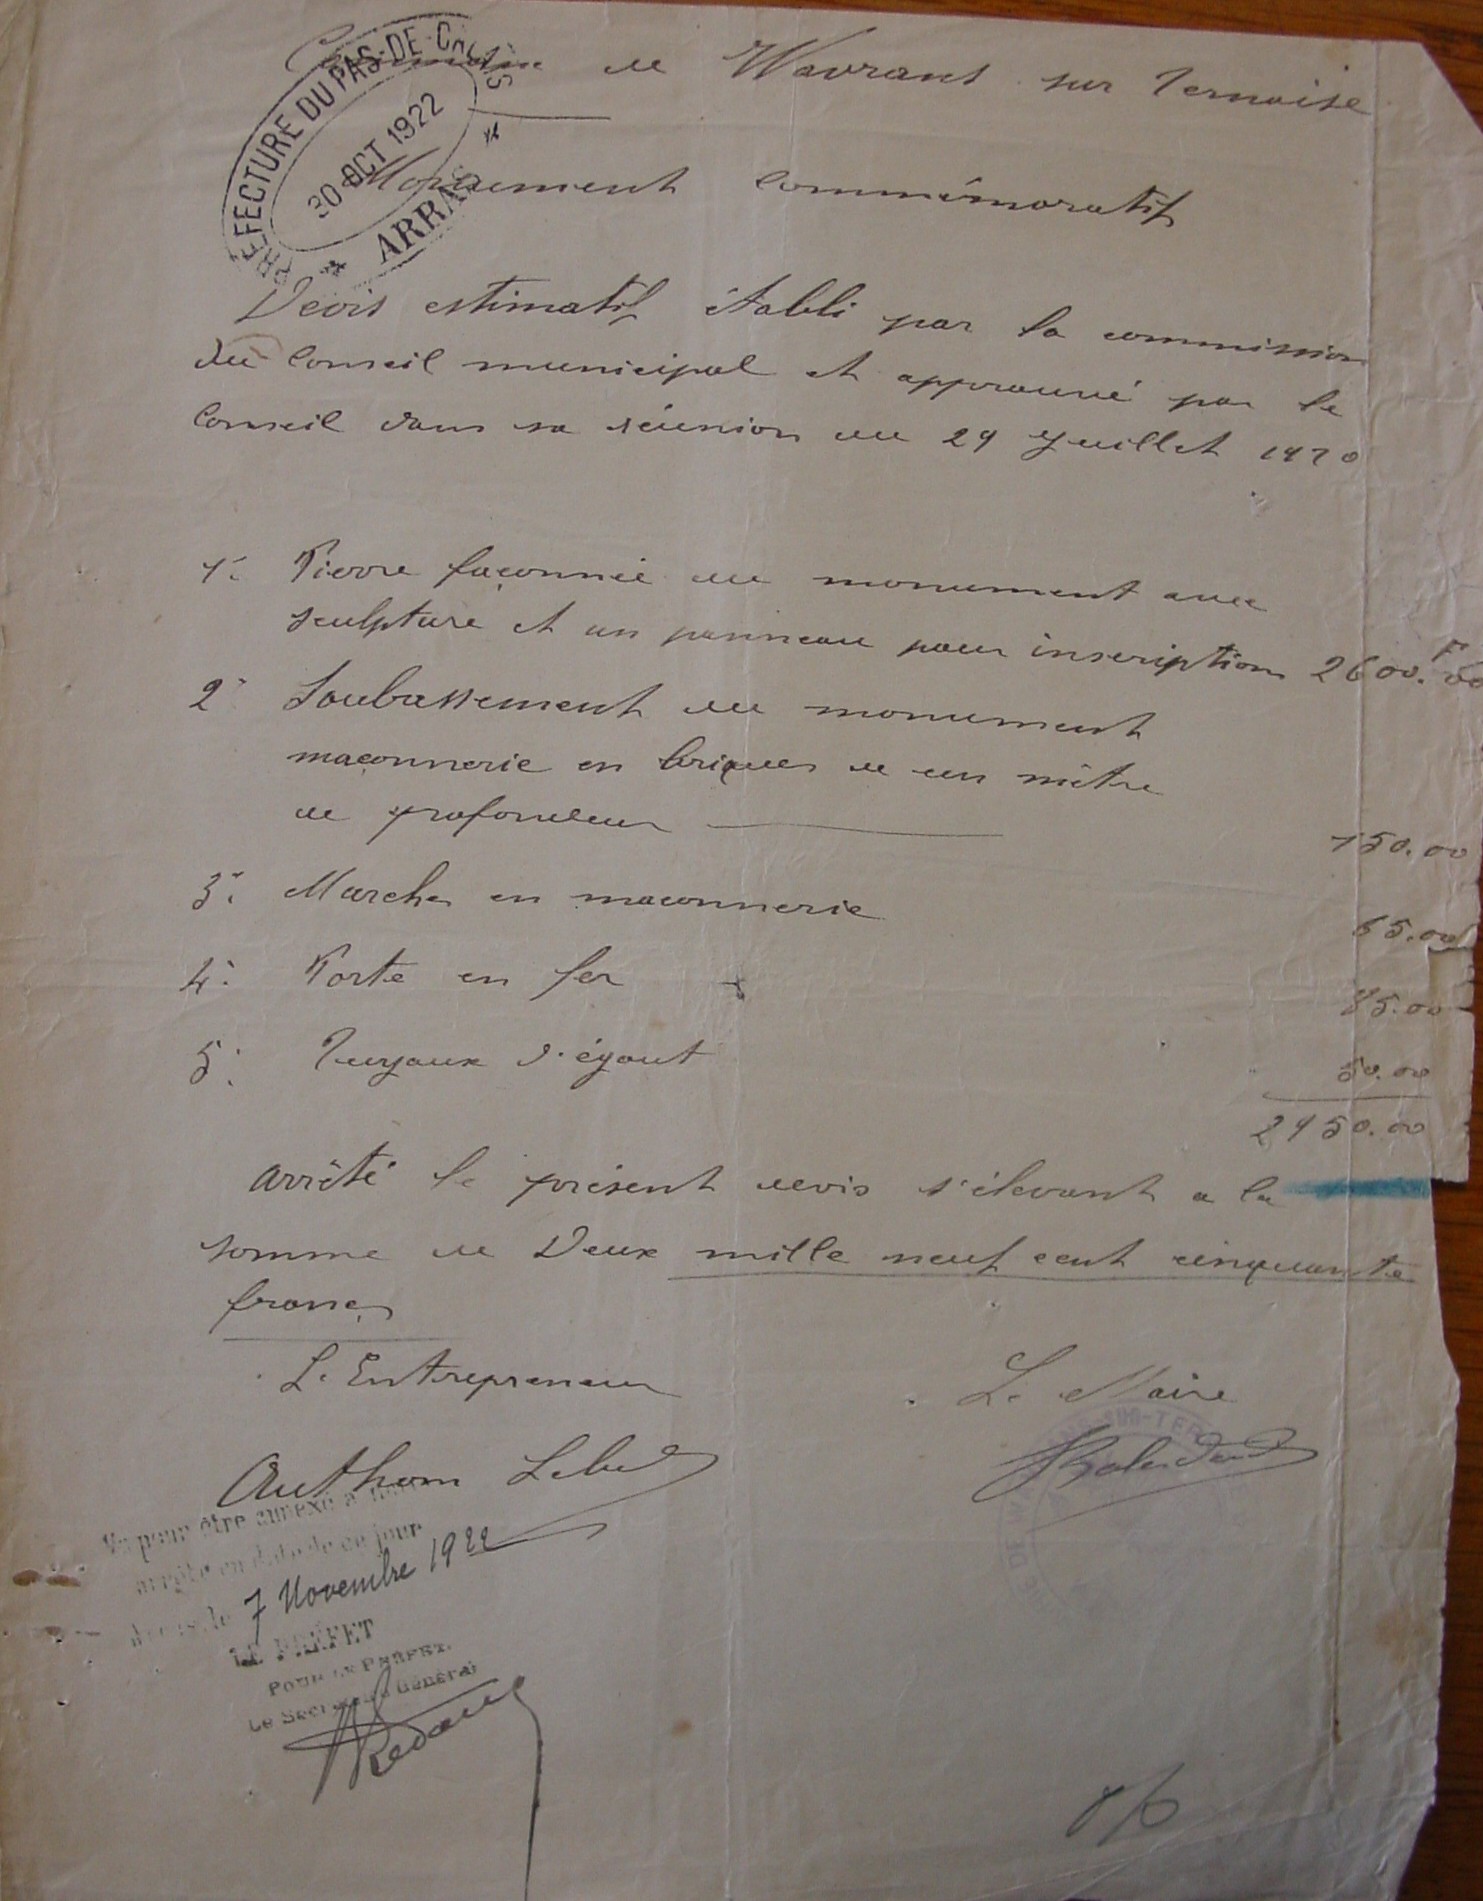 PREFECTURE DU PAS-DE-CALAIS
30 OCT 1922
* ARRAS *
Commune de Wavrans sur Ternoise
Monument commémoratif
Devis estimatif établi par la commission
du Conseil municipal et approuvé par le
Conseil dans sa réunion du 29 Juillet 1920
1° Pierre façonnée du monument avec
sculpture et un panneau pour inscription 2600.F00
2° Soubassement du monument
maçonnerie en briques de un mètre
de profondeur 150.00
3° Marches en maçonnerie 65.00
4° Porte en fer 85.00
5° Tuyaux d'égout 50.00
2950.00
Arrêté le présent devis s'élevant a la
somme de Deux mille neuf cent cinquante
francs
L'Entrepreneur Le Maire
Authom
Vu pour être annexé à
arrêté en date de ce jour
le 7 Novembre 1922
LE PRÉFET
POUR LE PREFET.
Le Secrétaire Général